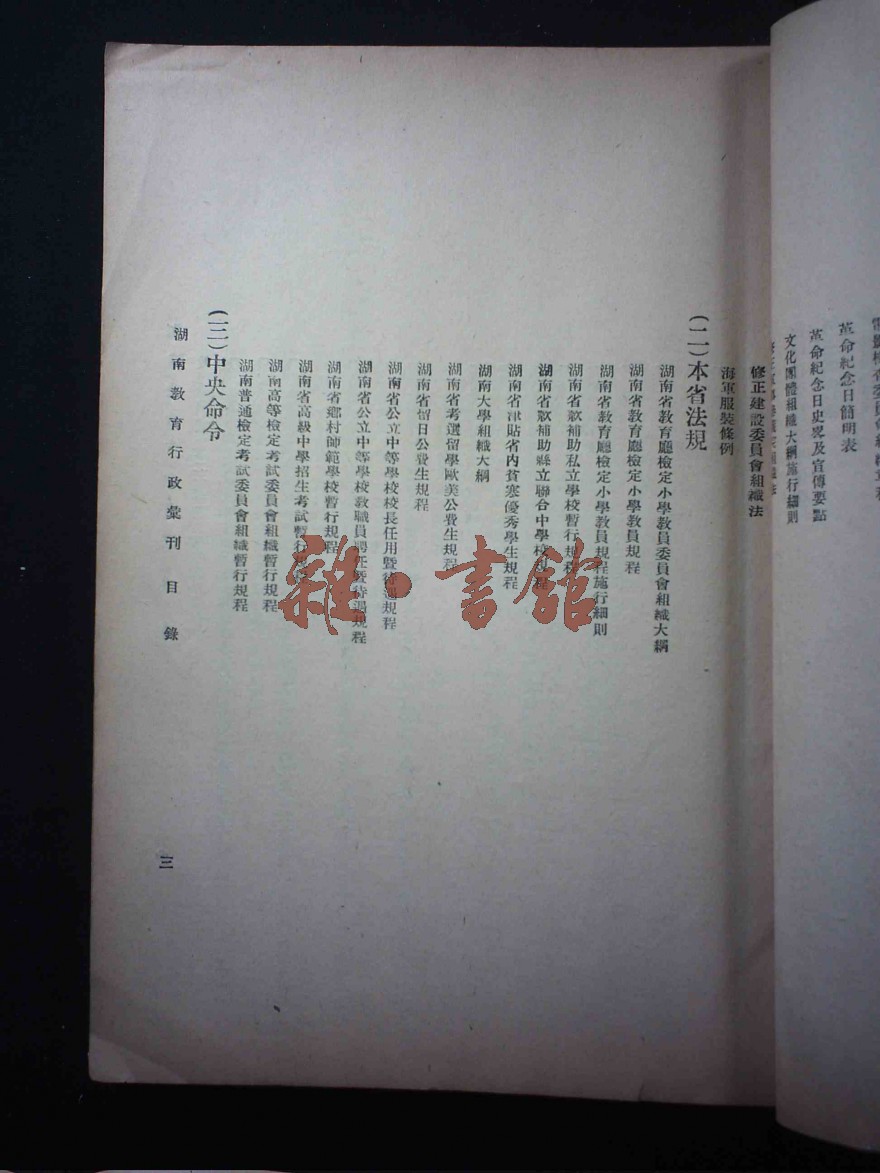 革命紀念日簡明表
革命紀念日史畧及宣傳要點
文化團體組織大綱施行細則
修正建設委員會組織法
海軍服裝條例
(二)本省法規
湖南省教育廳檢定小學教員委員會組織大綱
湖南省教育廳檢定小學教員規程
湖南省教育廳檢定小學教員規程施行細則
湖南省欵補助私立學校暫行規程
湖南省欵補助縣立聯合中學校規程
湖南省津貼省內貧寒優秀學生規程
湖南大學組織大綱
湖南省考選留學歐美公費生規程
湖南省留日公費生規程
湖南省公立中等學校校長任用暨待遇規程
湖南省公立中等學校教職員聘任暨待遇規程
湖南省鄉村師範學校暫行規程
湖南省高級中學招生考試暫行規程
湖南高等檢定考試委員會組織暫行規程
湖南普通檢定考試委員會組織暫行規程
(三)中央命令
湖南教育行政彙刊 目錄
三
雜·書館